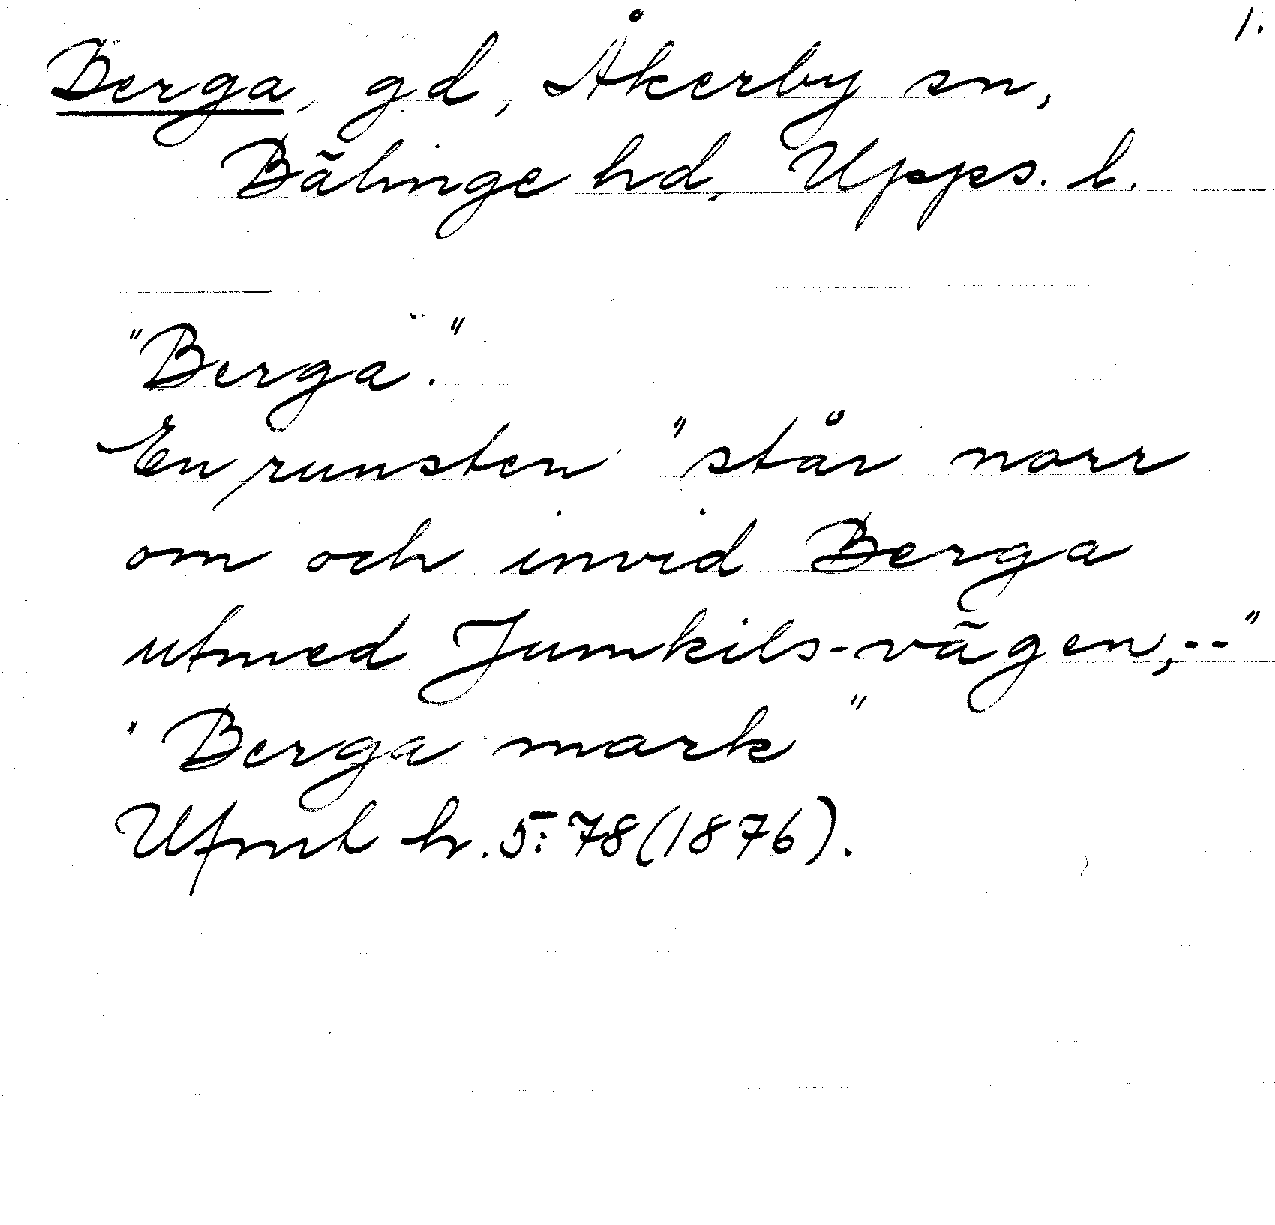 1.
Berga, gd, Åkerby sn,
Bälinge hd, Upps. l.
"Berga".
En runsten "står norr
om och invid Berga
utmed Jumkils-vägen,--"
"Berga mark"
Ufmt h. 5:78 (1876).